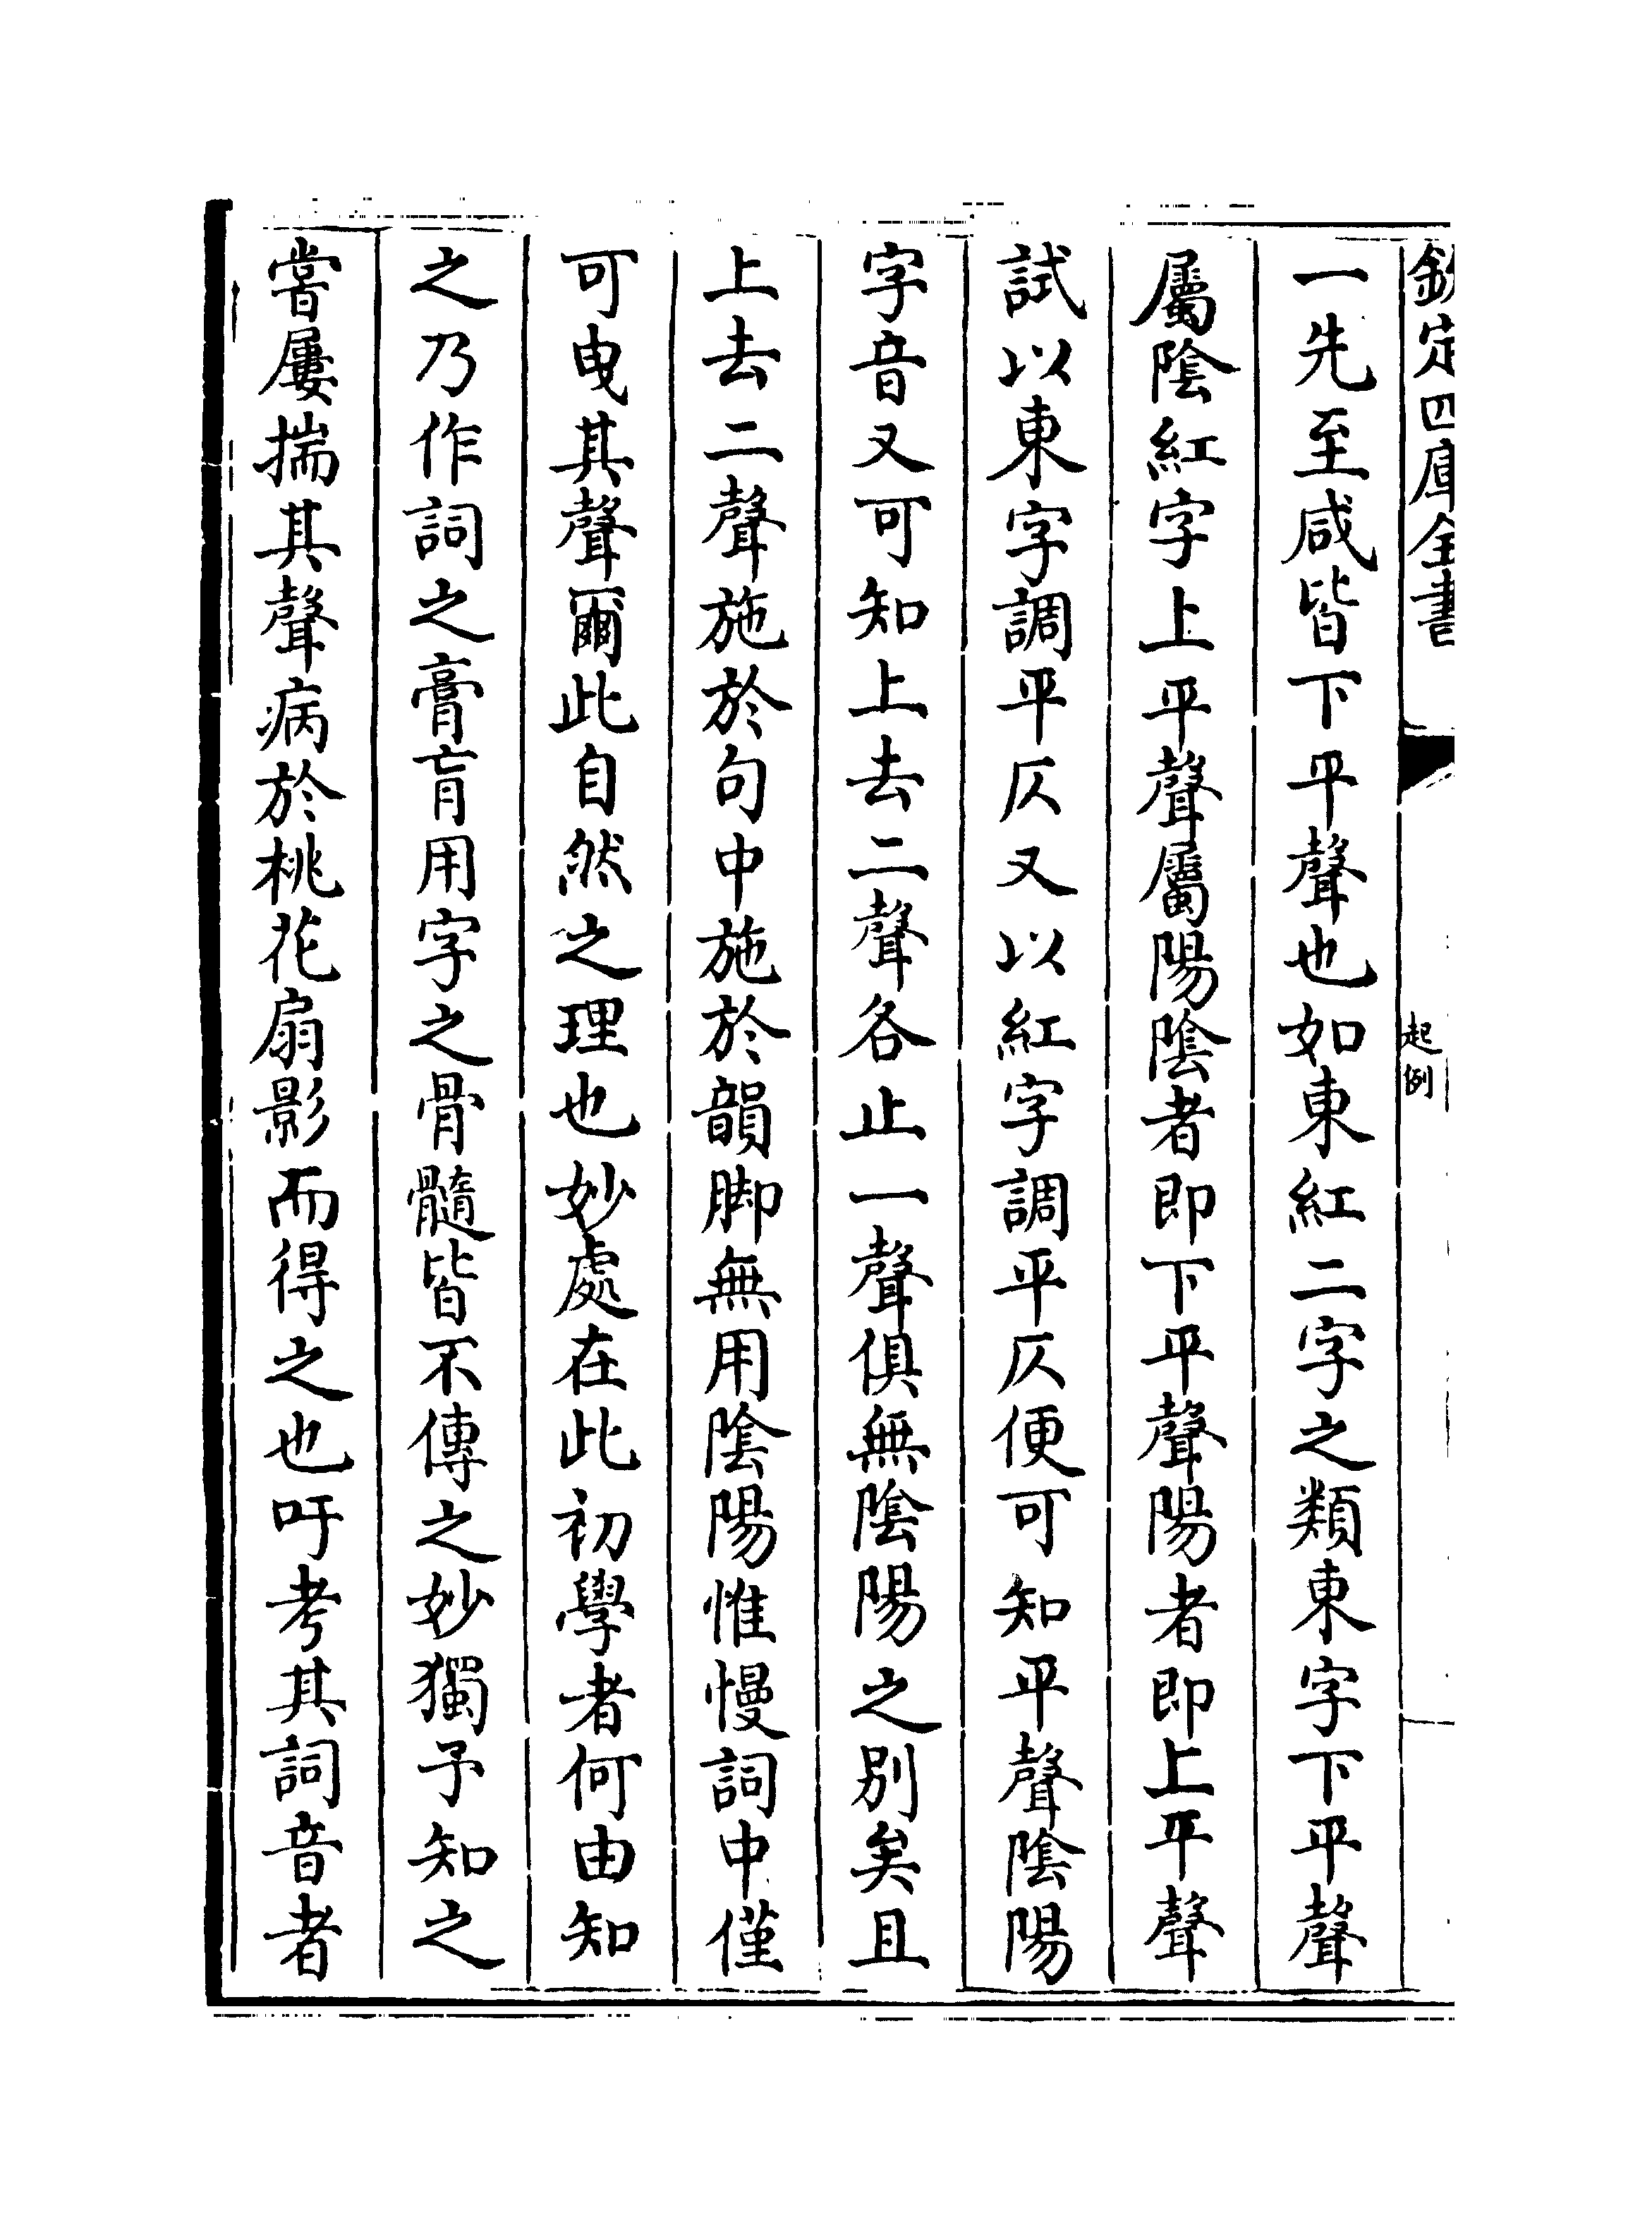 欽定四庫全書
起例
一先至咸皆下平聲也如東紅二字之類東字下平聲
屬陰紅字上平聲屬陽陰者即下平聲陽者即上平聲
試以東字調平仄又以紅字調平仄便可知平聲陰陽
字音又可知上去二聲各止一聲俱無陰陽之別矣且
上去二聲施於句中施於韻脚無用陰陽惟慢詞中僅
可曳其聲爾此自然之理也妙處在此初學者何由知
之乃作詞之膏肓用字之骨髓皆不傳之妙獨予知之
嘗屢揣其聲病於桃花扇影而得之也吁考其詞音者